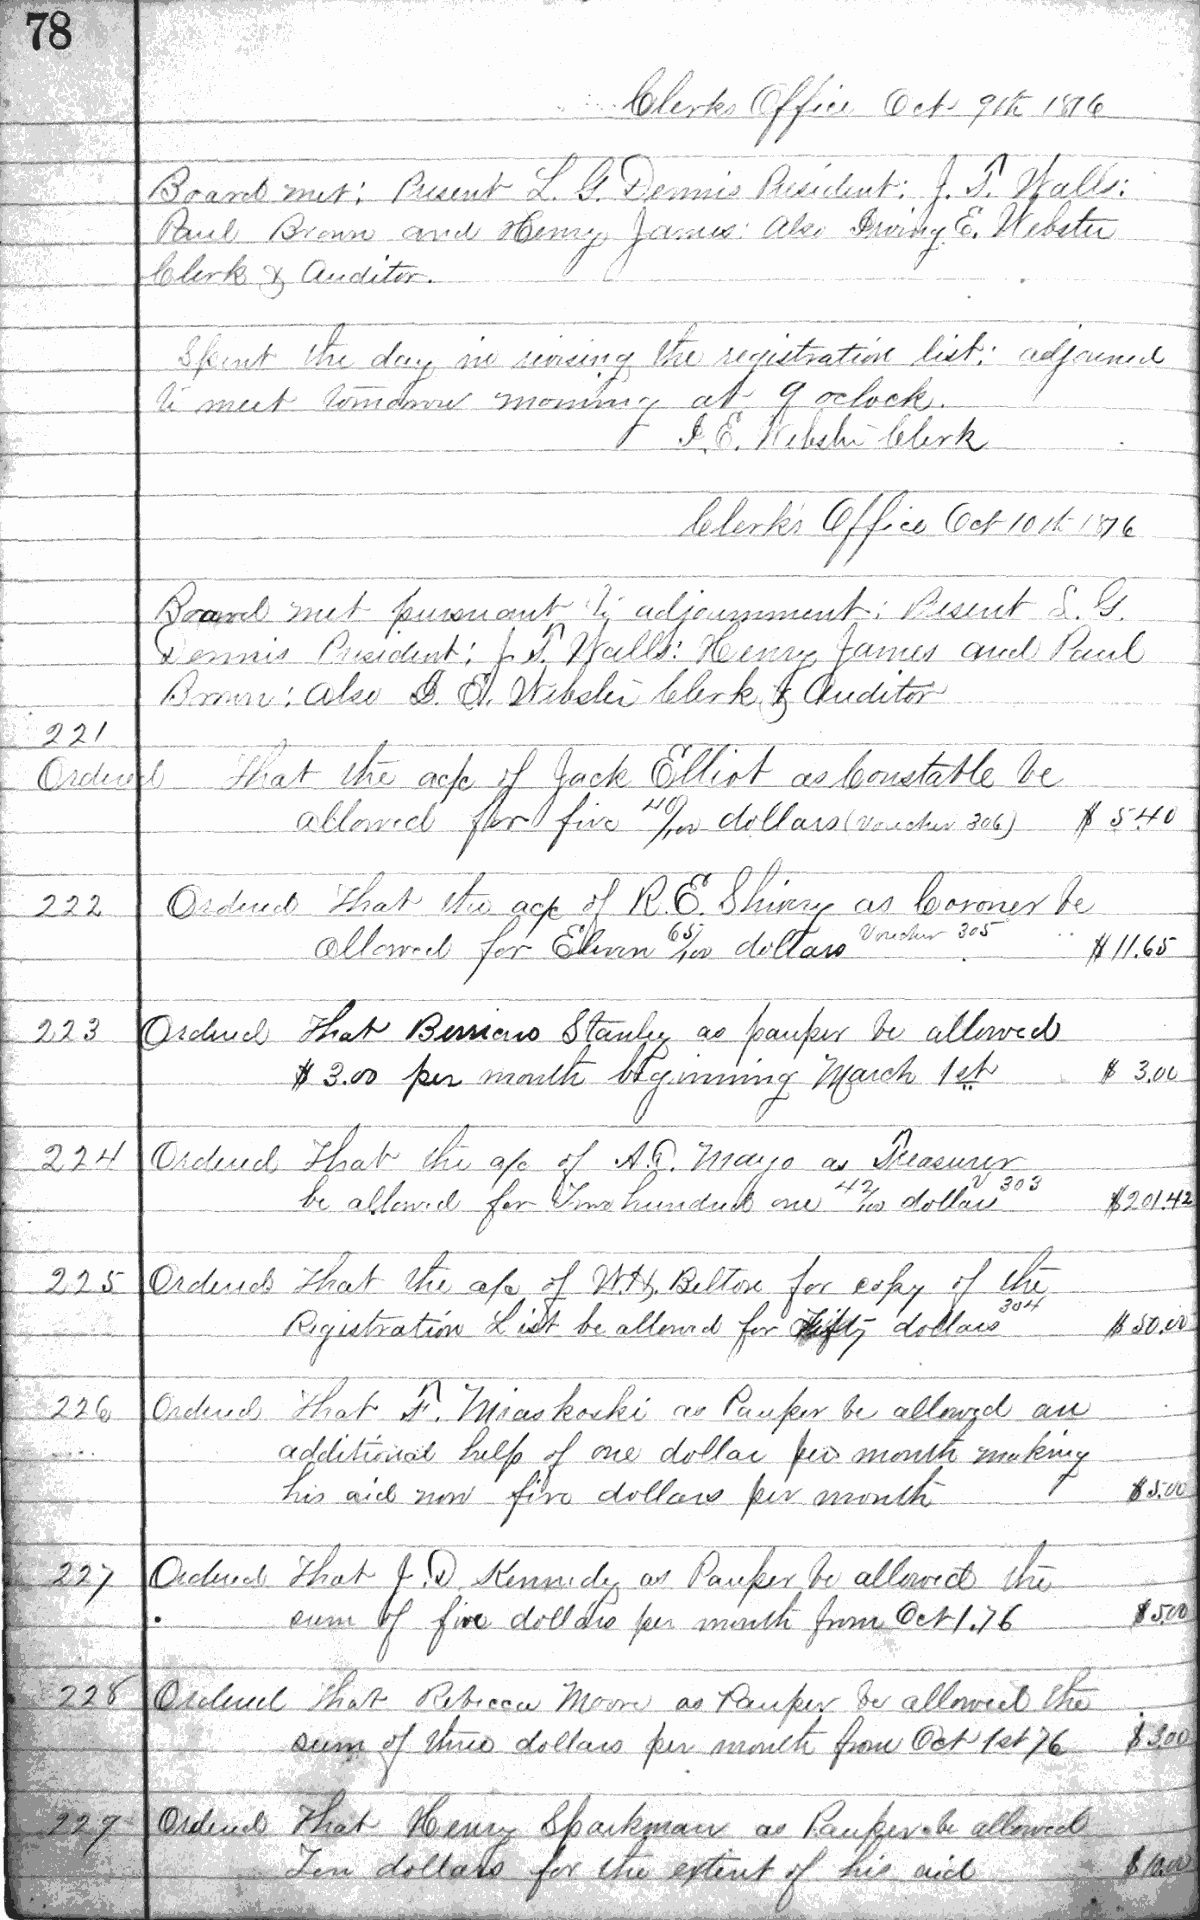 78
Clerks Office Oct 9th 1876
Board met; Present L. G. Dennis President: J. T. Walls:
Paul Brown and Henry James: also Irving E. Webster
Clerk & Auditor.
Spent the day in revising the registration list: adjourned
to meet tomorrow morning at 9 oclock.
I. E. Webster Clerk
Clerk's Office Oct 10th 1876
Board met pursuant to adjournment: Present L. G.
Dennis President: J. T. Walls: Henry James and Paul
Brown: also I. E. Webster Clerk & Auditor
221
Ordered That the a/c of Jack Elliot as Constable be
allowed for five 40/100 dollars (Voucher 306) $ 5.40
222 Ordered That the a/c of R. E. Shivery as Coroner be
allowed for Eleven 65/100 dollars Voucher 305 $ 11.65
223 Ordered That Stanley as pauper be allowed
$ 3.00 per month beginning March 1st $ 3.00
224 Ordered That the a/c of A. D. Mayo as Treasurer
be allowed for Two hundred one 42/100 dollars V 303 $201.42
225 Ordered That the a/c of W. H. Belton for copy of the
Registration List be allowed for Fifty dollars 304 $ 50.00
226 Ordered That F. Miaskoski as Pauper be allowed an
additional help of one dollar per month making
his aid now five dollars per month $5.00
227 Ordered That J. D. Kennedy as Pauper be allowed the
sum of five dollars per month from Oct 1.76 $5.00
228 Ordered That Rebecca Moore as Pauper be allowed the
sum of three dollars per month from Oct 1st 76 $3.00
229 Ordered That Henry Sparkman as Pauper be allowed
Ten dollars for the extent of his aid $10.00